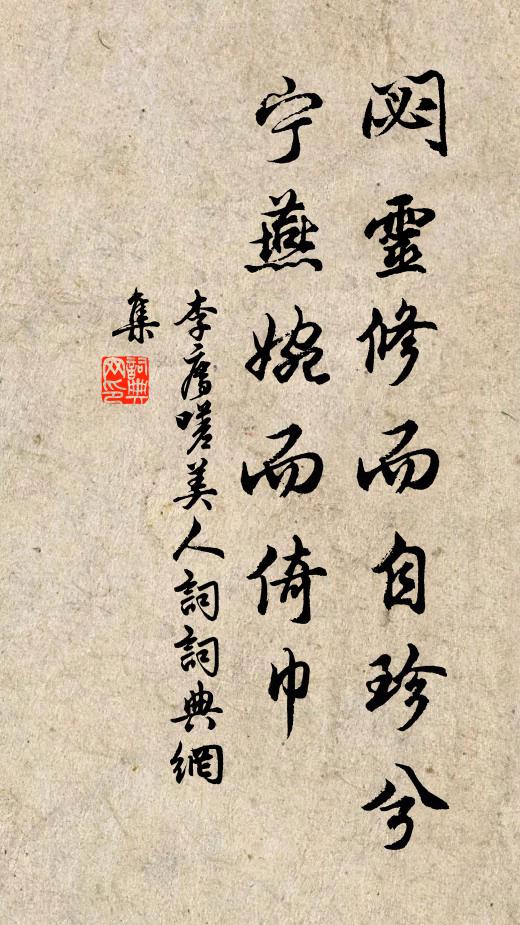 閟靈修而自珍兮
宁燕婉而倚巾
李廌嗟美人詞詞典網
集
詞典
网印